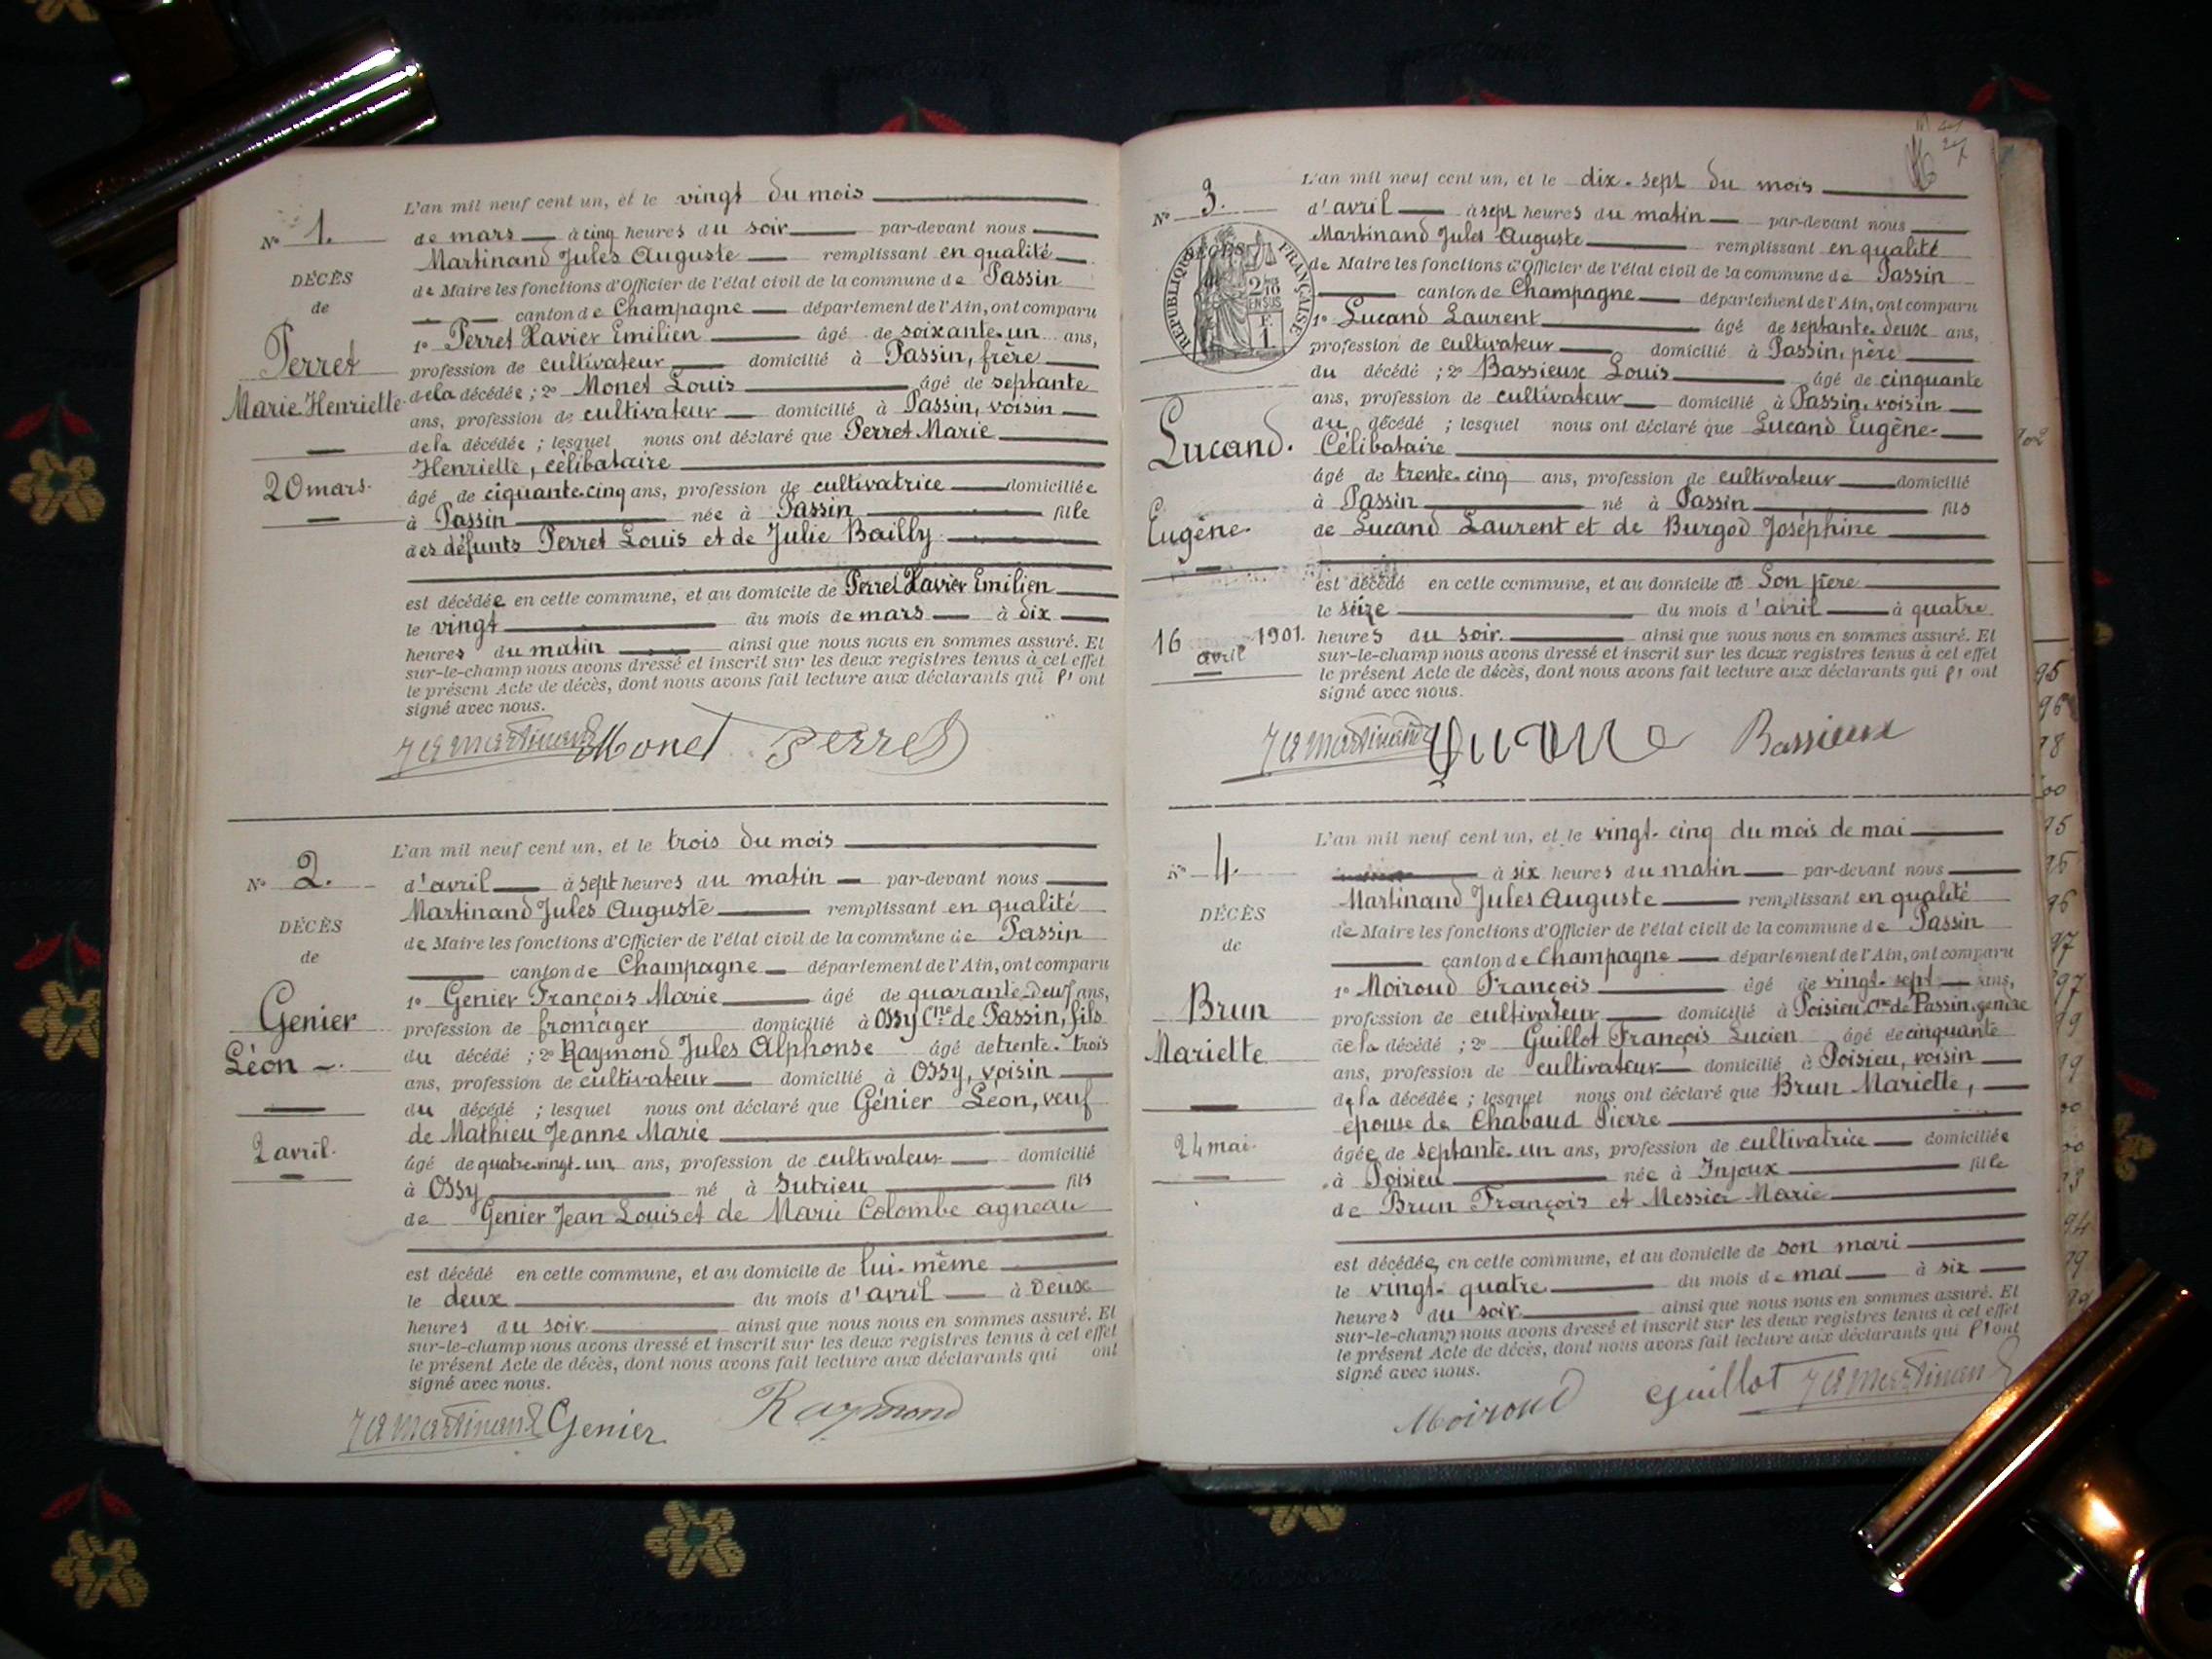 L'an mil neuf cent un, et le vingt du mois
N° 1. de mars à cinq heures du soir par-devant nous
Martinand Jules Auguste remplissant en qualité
DÉCÈS de Maire les fonctions d'Officier de l'état civil de la commune de Passin
de canton de Champagne département de l'Ain, ont comparu
1° Perret Xavier Emilien âgé de soixante-un ans,
Perret profession de cultivateur domicilié à Passin, frère
Marie Henriette de la décédée ; 2° Monet Louis âgé de septante
ans, profession de cultivateur domicilié à Passin, voisin
de la décédée ; lesquel nous ont déclaré que Perret Marie
Henriette, célibataire
20 mars. âgé de ciquante-cinq ans, profession de cultivatrice domiciliée
à Passin née à Passin fille
des défunts Perret Louis et de Julie Bailly
est décédée en cette commune, et au domicile de Perret Xavier Emilien
le vingt du mois de mars à dix
heures du matin ainsi que nous nous en sommes assuré. Et
sur-le-champ nous avons dressé et inscrit sur les deux registres tenus à cet effet
le présent Acte de décès, dont nous avons fait lecture aux déclarants qui l'ont
signé avec nous.
JA Martinand Monet Perret
L'an mil neuf cent un, et le trois du mois
N° 2. d'avril à sept heures du matin par-devant nous
Martinand Jules Auguste remplissant en qualité
DÉCÈS de Maire les fonctions d'Officier de l'état civil de la commune de Passin
de canton de Champagne département de l'Ain, ont comparu
1° Genier François Marie âgé de quarante-deux ans,
Genier profession de fromager domicilié à Ossy Cne de Passin, fils
Léon du décédé ; 2° Raymond Jules Alphonse âgé de trente-trois
ans, profession de cultivateur domicilié à Ossy, voisin
du décédé ; lesquel nous ont déclaré que Génier Léon, veuf
de Mathieu Jeanne Marie
2 avril. âgé de quatre-vingt-un ans, profession de cultivateur domicilié
à Ossy né à Sutrieu fils
de Genier Jean Louis et de Marie Colombe agneau
est décédé en cette commune, et au domicile de lui-même
le deux du mois d'avril à deux
heures du soir. ainsi que nous nous en sommes assuré. Et
sur-le-champ nous avons dressé et inscrit sur les deux registres tenus à cet effet
le présent Acte de décès, dont nous avons fait lecture aux déclarants qui ont
signé avec nous.
JA Martinand Genier Raymond
L'an mil neuf cent un, et le dix-sept du mois
N° 3. d'avril à sept heures du matin par-devant nous
Martinand Jules Auguste remplissant en qualité
DÉCÈS de Maire les fonctions d'Officier de l'état civil de la commune de Passin
RÉPUBLIQUE FRANÇAISE
2/10 EN SUS
canton de Champagne département de l'Ain, ont comparu
1° Lucand Laurent âgé de septante-deux ans,
profession de cultivateur domicilié à Passin, père
du décédé ; 2° Bassieux Louis âgé de cinquante
ans, profession de cultivateur domicilié à Passin, voisin
du décédé ; lesquel nous ont déclaré que Lucand Eugène
Lucand. Célibataire
âgé de trente-cinq ans, profession de cultivateur domicilié
à Passin né à Passin fils
Eugène de Lucand Laurent et de Burgod Joséphine
est décédé en cette commune, et au domicile de Son père
le seize du mois d'avril à quatre
16 avril 1901. heures du soir. ainsi que nous nous en sommes assuré. Et
sur-le-champ nous avons dressé et inscrit sur les deux registres tenus à cet effet
le présent Acte de décès, dont nous avons fait lecture aux déclarants qui l'ont
signé avec nous.
JA Martinand Bassieux
L'an mil neuf cent un, et le vingt-cinq du mois de mai
N° 4. à six heures du matin par-devant nous
Martinand Jules Auguste remplissant en qualité
DÉCÈS de Maire les fonctions d'Officier de l'état civil de la commune de Passin
de canton de Champagne département de l'Ain, ont comparu
1° Moiroud François âgé de vingt-sept ans,
Brun profession de cultivateur domicilié à Poisieu, Cne de Passin, gendre
Mariette de la décédé ; 2° Guillot François Lucien âgé de cinquante
ans, profession de cultivateur domicilié à Poisieu, voisin
de la décédée ; lesquel nous ont déclaré que Brun Mariette,
épouse de Chabaud Pierre
24 mai. âgée de septante-un ans, profession de cultivatrice domiciliée
à Poisieu née à Injoux fille
de Brun François et Messia Marie
est décédée, en cette commune, et au domicile de son mari
le vingt-quatre du mois de mai à six
heures du soir. ainsi que nous nous en sommes assuré. Et
sur-le-champ nous avons dressé et inscrit sur les deux registres tenus à cet effet
le présent Acte de décès, dont nous avons fait lecture aux déclarants qui l'ont
signé avec nous.
Moiroud Guillot JA Martinand